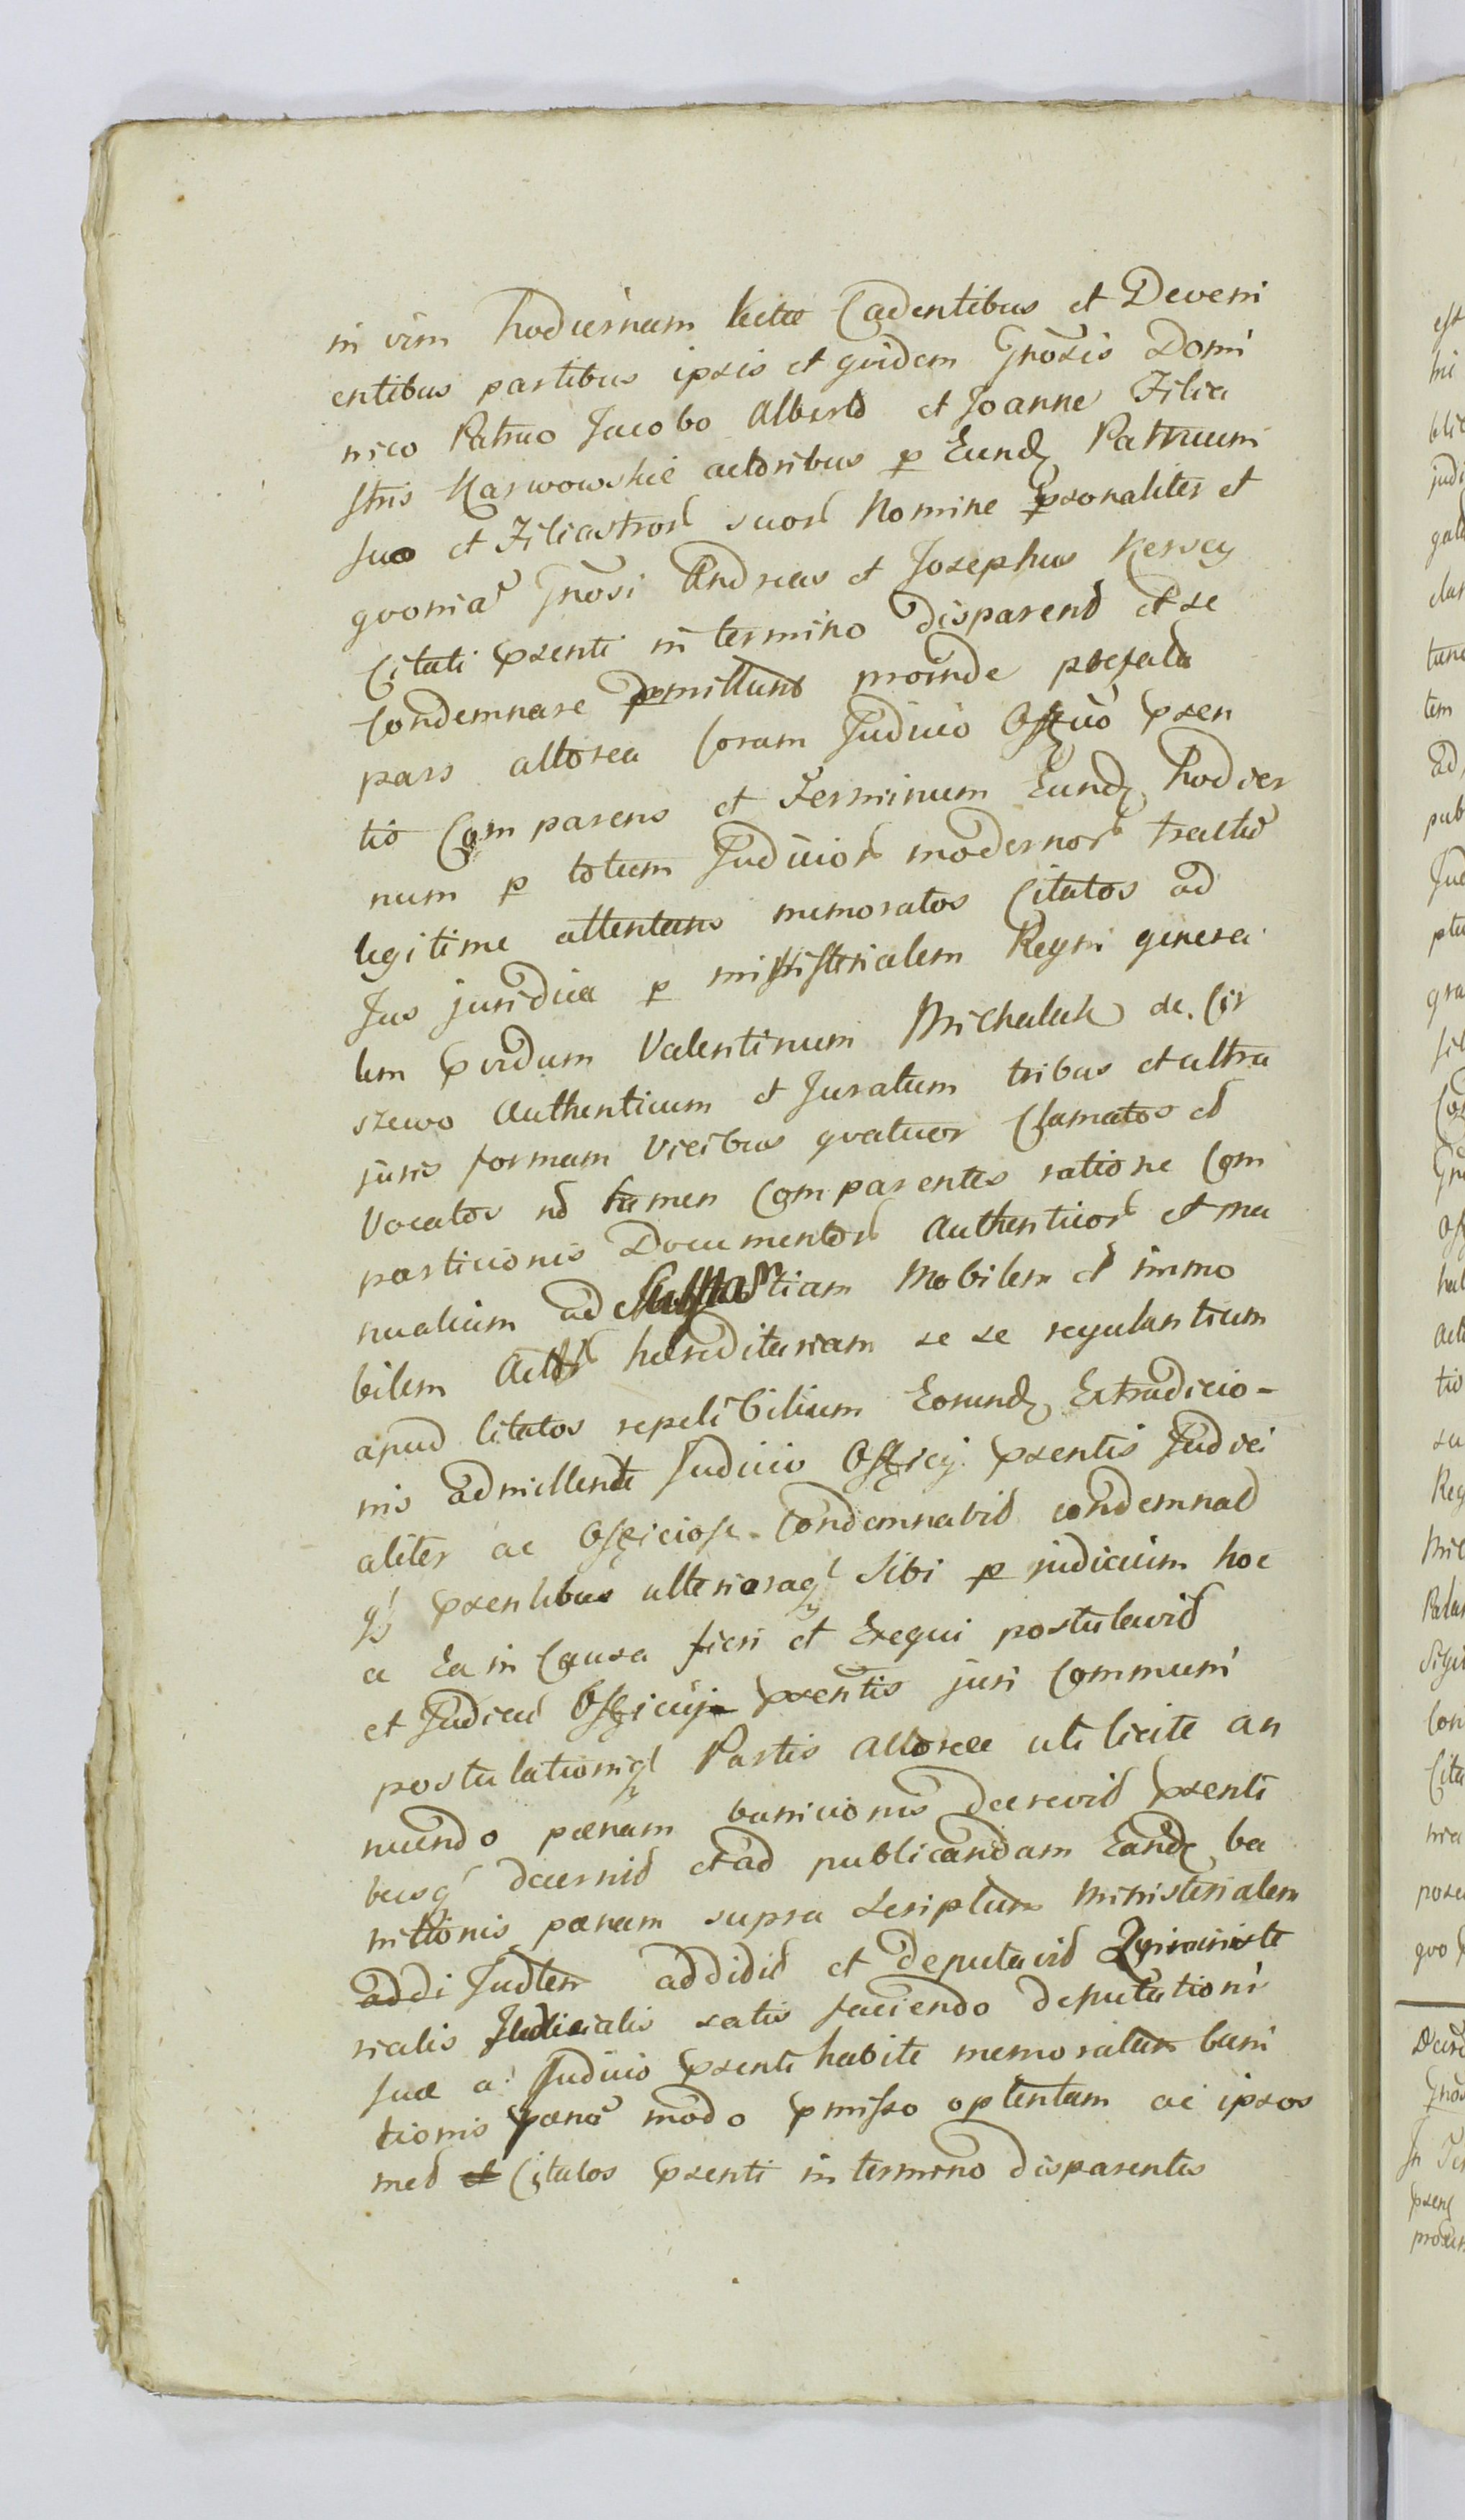 in vim hodiernam lucta Cadentibus et Deveni
entibus partibus ipsis et quidem Gnosis Domi
nico Patruo Jacobo Alberto et Joanne Filia
stris Karwowskie actoribus p Eund Patruum
suo et Filiastror suor Nomine psonaliter et
quonia Gnosi Andreas et Josephus Kersey
Citati psenti in termino disparend et se
Condemnare pmittunt proinde prefata
pars actorea Coram Judicio Offcio psen
tio Comparens et Terminum Eund hodier
num p totum Judicior modernor tractu
legitime attentans memoratos Citatos ad
Jus juridica p ministerialem Regni genera
lem pvidum Valentinum Michalak de Cir
szewo Authenticum et Juratum tribus et ultra
juris formam Vicibus quatuor Clamatos et
Vocatos no tamen Comparentes ratione Com
particionis Documentor Authenticor et ma
nualium ad Substantiam Mobilem et immo
bilem Actor hereditariam se se regulantium
apud Citatos repetibilium Eorund Extradicio-
nis admittente Judicio Officy psentis Judici
aliter ac Officiose Condemnavit condemnat
q psentibus ulterioraq Sibi p judicium hoc
a Ea in Causa fieri et Exequi postulavit
et Judiciu Officiy psentis juri Communi
postulationiq Partis Actoreæ uti licite an
nuendo pænam banicionis decrevit psenti
busq decernit et ad publicandam Eand ba
nittionis pænam supra scriptum Ministerialem
addi Judlem addidit et deputavit Qui ministe
rialis Judicialis satis faciendo deputationi
suæ a Judicio psenti habite memoratam bani
tionis pæna modo pmisso optentam ac ipsos
met Citatos psenti in termino disparentes